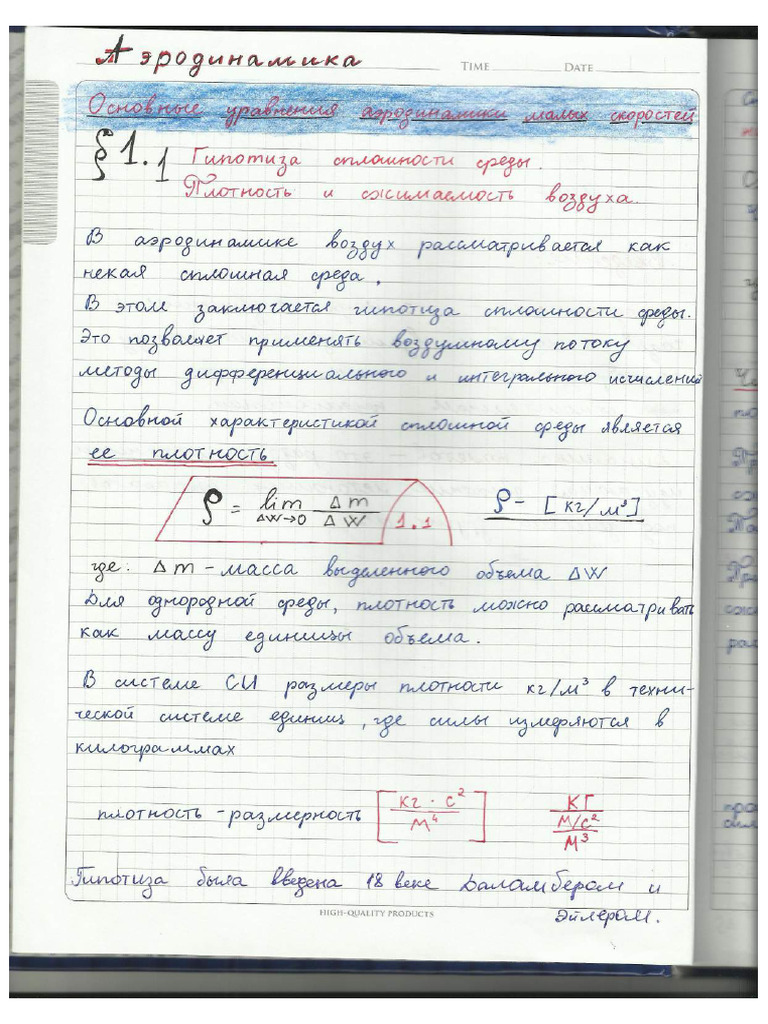 Аэродинамика
TIME DATE
Основные уравнения аэродинамики малых скоростей
§1.1 Гипотиза сплошности среды.
Плотность и сжимаемость воздуха.
В аэродинамике воздух рассматривается как
некая сплошная среда.
В этом заключается гипотиза сплошности среды.
Это позволяет применять воздушному потоку
методы дифференциального и интегрального исчислений
Основной характеристикой сплошной среды является
ее плотность
ρ = lim Δm/ΔW ΔW→0 1.1 ρ - [кг/м³]
где: Δm - масса выделенного объема ΔW
Для однородной среды, плотность можно рассматривать
как массу единицы объема.
В системе СИ размеры плотности кг/м³ в техни-
ческой системе единиц, где силы измеряются в
килограммах
плотность - размерность [кг · с²/м⁴] КГ/М/с²/М³
Гипотиза была введена 18 веке Даламбером и
Эйлером.
HIGH-QUALITY PRODUCTS